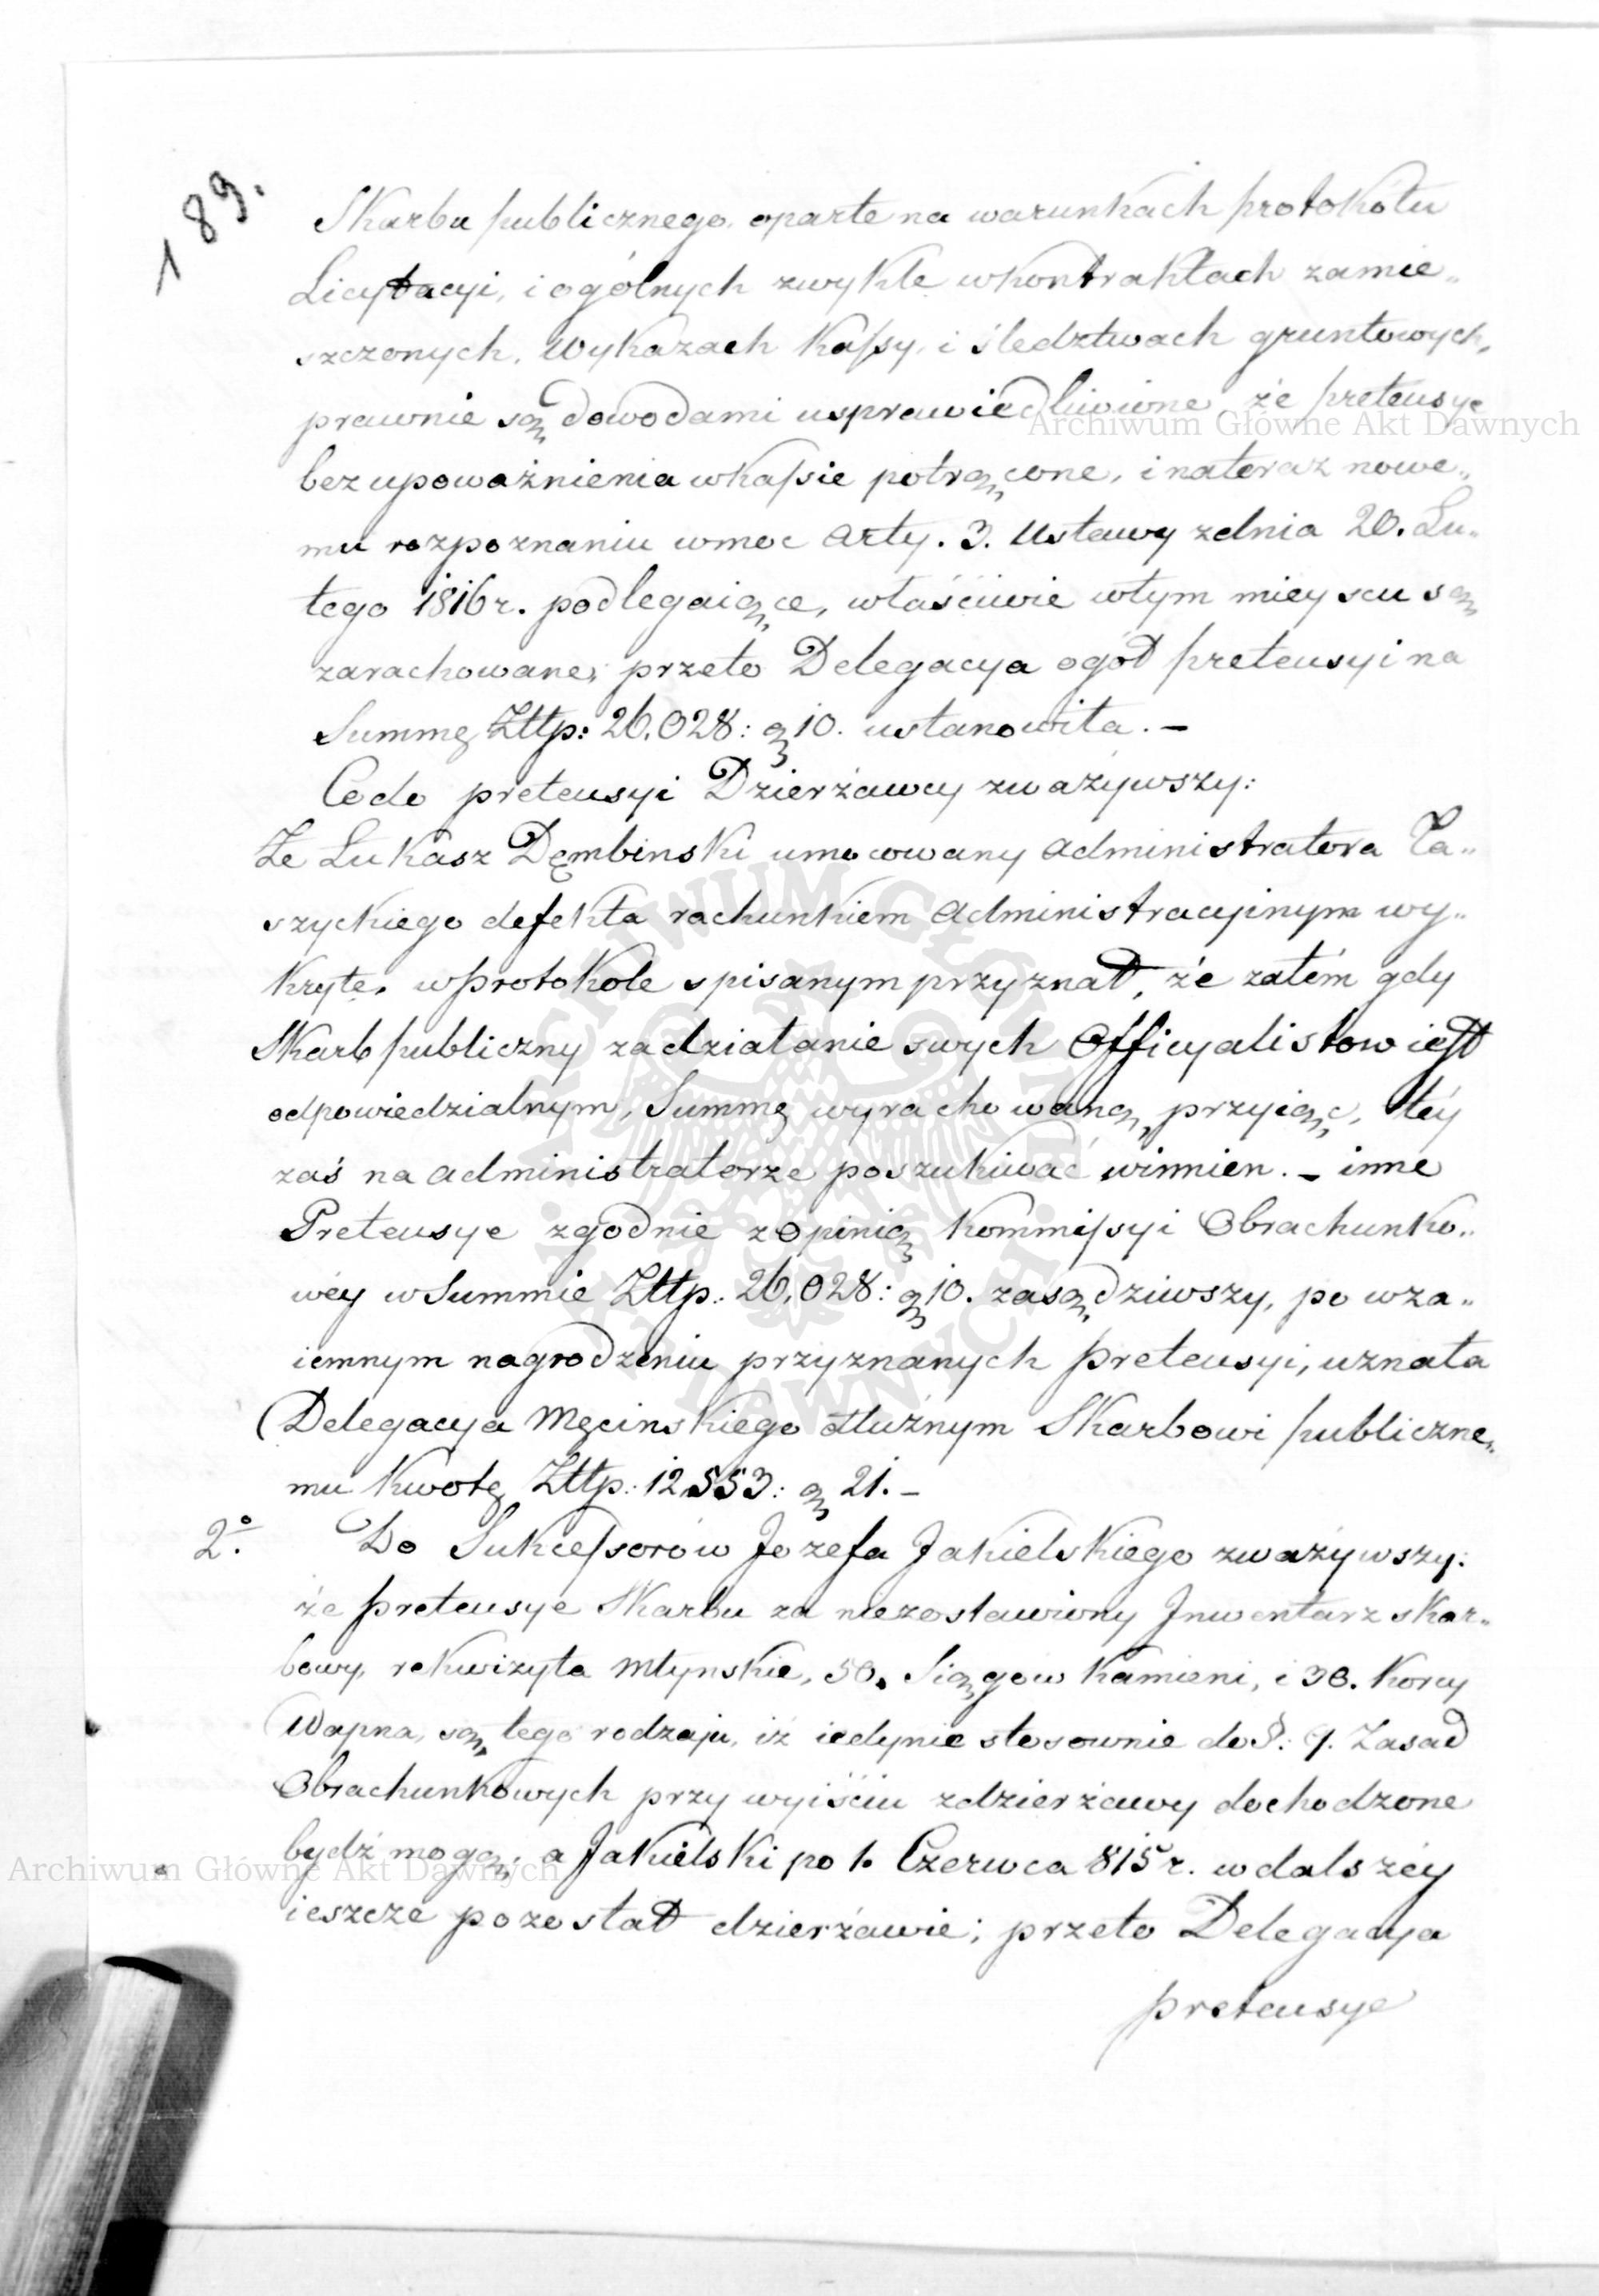 189.
Skarbu publicznego, oparte na warunkach protokółu
Licytacyi, i ogólnych zwykle w kontraktach zamie„
szczonych, Wykazach Kassy, i śledztwach gruntowych,
prawnie są dowodami usprawiedliwione, że pretensye
Archiwum Główne Akt Dawnych
bez upoważnienia w kassie potrącone, i nateraz nowe„
mu rozpoznaniu w moc Arty. 3. Ustawy z dnia 20. Lu„
tego 1816 r. podlegaiące, właściwie w tym mieyscu są
zarachowane; przeto Delegacya ogół pretensyi na
Summę Złłp: 26,028: g 10. ustanowiła. –
Co do pretensyi Dzierżawcy zważywszy:
Że Łukasz Dembinski umocowany Administratora Ta„
szyckiego defekta rachunkiem Administracyinym wy„
kryte, w Protokole spisanym przyznał, że zatém gdy
Skarb publiczny za działanie swych Officyalistow iest
odpowiedzialnym, Summę wyrachowaną przyiąć, téy
zaś na Administratorze poszukiwać winnien. – inne
Pretensye zgodnie z Opinią Kommissyi Obrachunko„
wéy w Summie Złłp: 26,028: g 10. zasądziwszy, po wza„
iemnym nagrodzeniu przyznanych pretensyi, uznała
Delegacya Męcinskiego dłużnym Skarbowi publiczne„
mu Kwotę Złłp: 12553: g 21. –
2º. Do Sukcessorów Jozefa Jakielskiego zważywszy:
że pretensye Skarbu za niezostawiony Inwentarz skar„
bowy, rekwizyta młynskie, 50. Siągów kamieni, i 30. Korcy
Wapna, są tego rodzaju, iż iedynie stosownie do §: 9. Zasad
Obrachunkowych przy wyiściu z dzierżawy dochodzone
bydź mogą; a Jakielski po 1. Czerwca 815 r. w dalszéy
Archiwum Główne Akt Dawnych
ieszcze pozostał dzierżawie; przeto Delegacya
pretensye